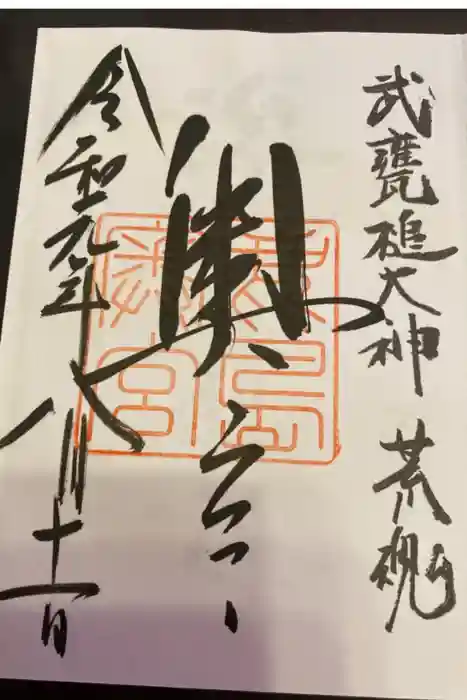 武甕槌大神 荒魂
奥宮
令和元年八月十一日
鹿島奥宮